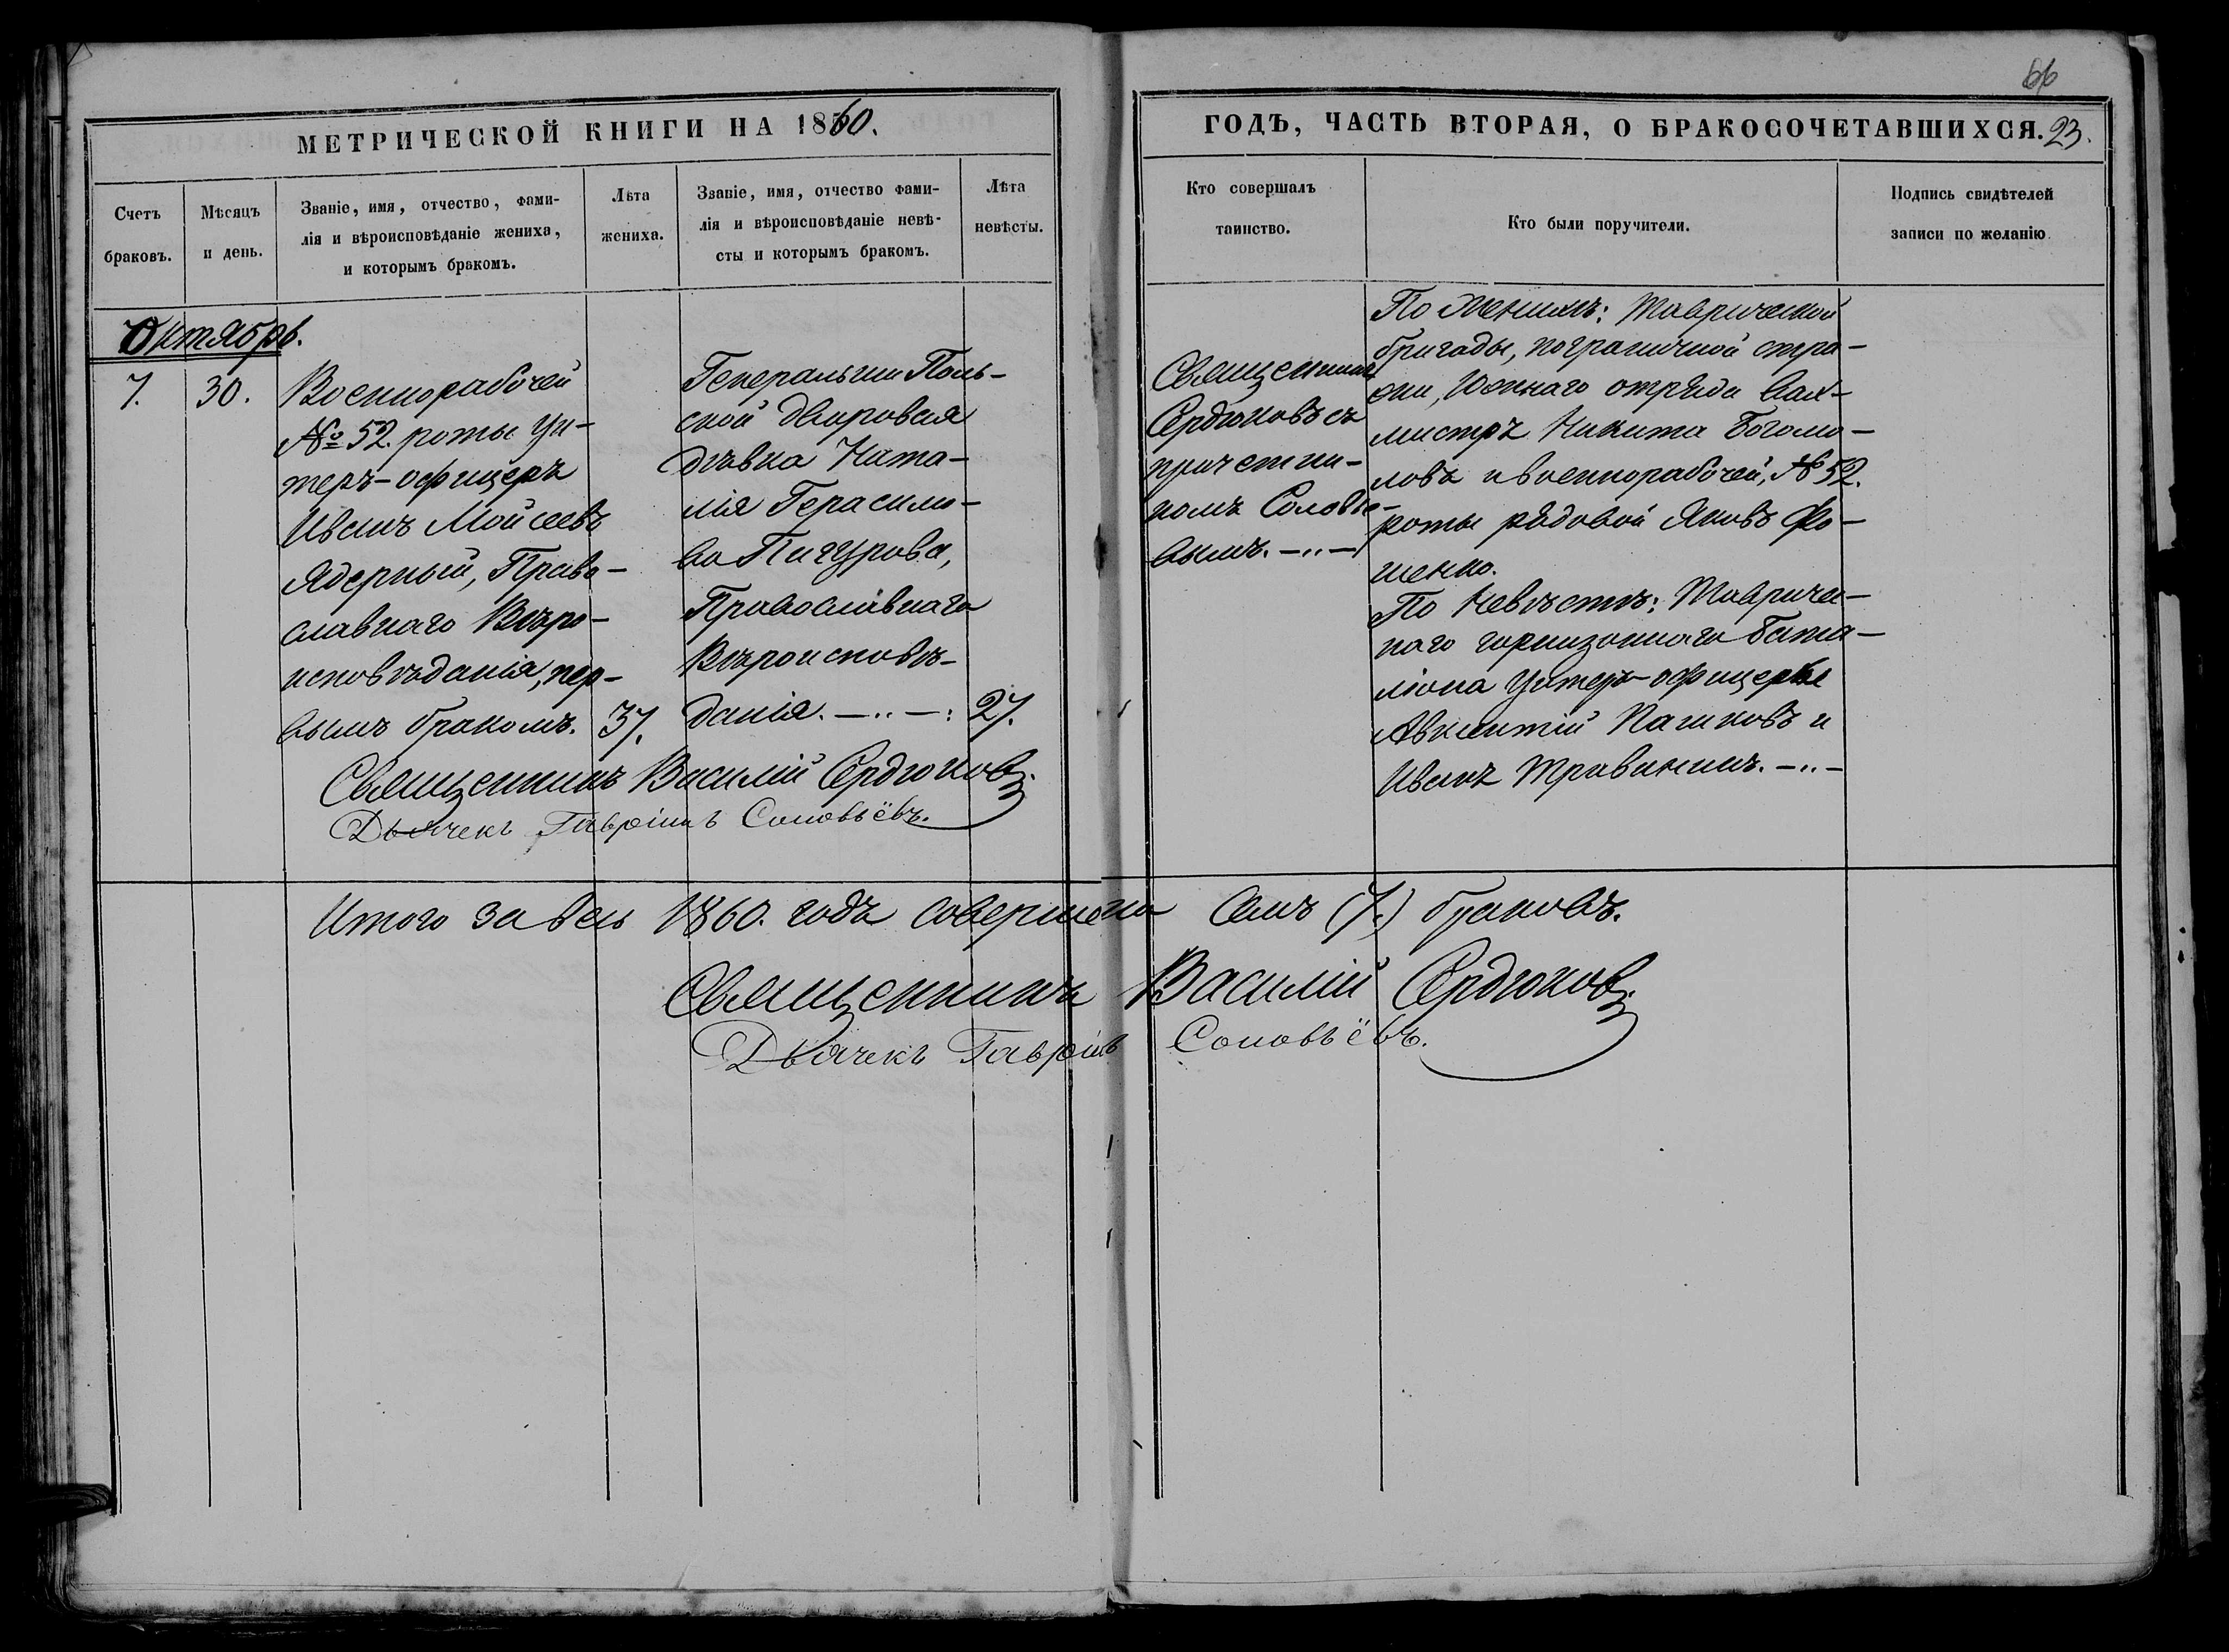 66
МЕТРИЧЕСКОЙ КНИГИ НА 1860.
ГОДЪ, ЧАСТЬ ВТОРАЯ, О БРАКОСОЧЕТАВШИХСЯ. 23.
Счетъ
браковъ.
Мѣсяцъ
и день.
Званіе, имя, отчество, фами-
лія и вѣроисповѣданіе жениха,
и которымъ бракомъ.
Лѣта
жениха.
Званіе, имя, отчество фами-
лія и вѣроисповѣданіе невѣ-
сты и которымъ бракомъ.
Лѣта
невѣсты.
Кто совершалъ
таинство.
Кто были поручители.
Подпись свидѣтелей
записи по желанію
Октябрь.
7.
30.
Военнорабочей
№ 52. роты Ун-
теръ-офицеръ
Иванъ Мойсеевъ
Ядерный, Право-
славнаго Вѣро-
исповѣданія, пер-
вымъ бракомъ.
37.
Генеральши Поль-
ской дворовая
дѣвка Ната-
лія Герасимо-
ва Пичурова,
Православнаго
Вѣроисповѣ-
данія. —„—:
27.
Священникъ
Сердюковъ съ
причетни-
комъ Соловье-
вымъ. —„—
По Женихѣ: Таврической
бригады, пограничной стра-
жи, Южнаго отряда Вах-
мистръ Никита Богомо-
ловъ и военнорабочей, № 52.
роты рядовой Яковъ Фо-
менко.
По Невѣстѣ: Тавриче-
наго гарнизоннаго Бата-
ліона Унтеръ-офицеры
Авксентій Пачиковъ и
Иванъ Травинъ. —„—
Священникъ Василій Сердюковъ.
Дьячекъ Гавріилъ Соловьёвъ.
Итого за весь 1860. годъ совершено семь (7.) браковъ.
Священникъ Василій Сердюковъ.
Дьячекъ Гавріилъ Соловьёвъ.